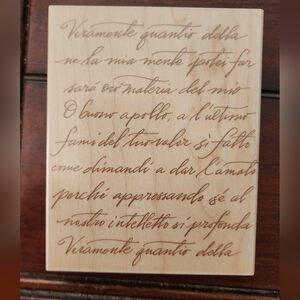 Veramente quantio della
ne la mia mente potei far
sará ora materia del mio
O buono apollo, a l'ultimo
fami del tuo valor si fatto
come dimandi a dar l'amato
perchi appressando sé al
nostro intelletto si profonda
Veramente quantio della